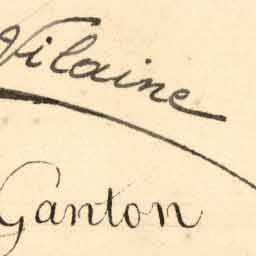 Vilaine
Canton